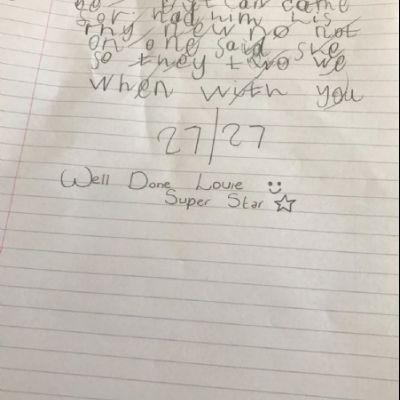 be but can came
for had him his
my new no not
on one said she
so they two we
when with you
27/27
Well Done Louie
Super Star